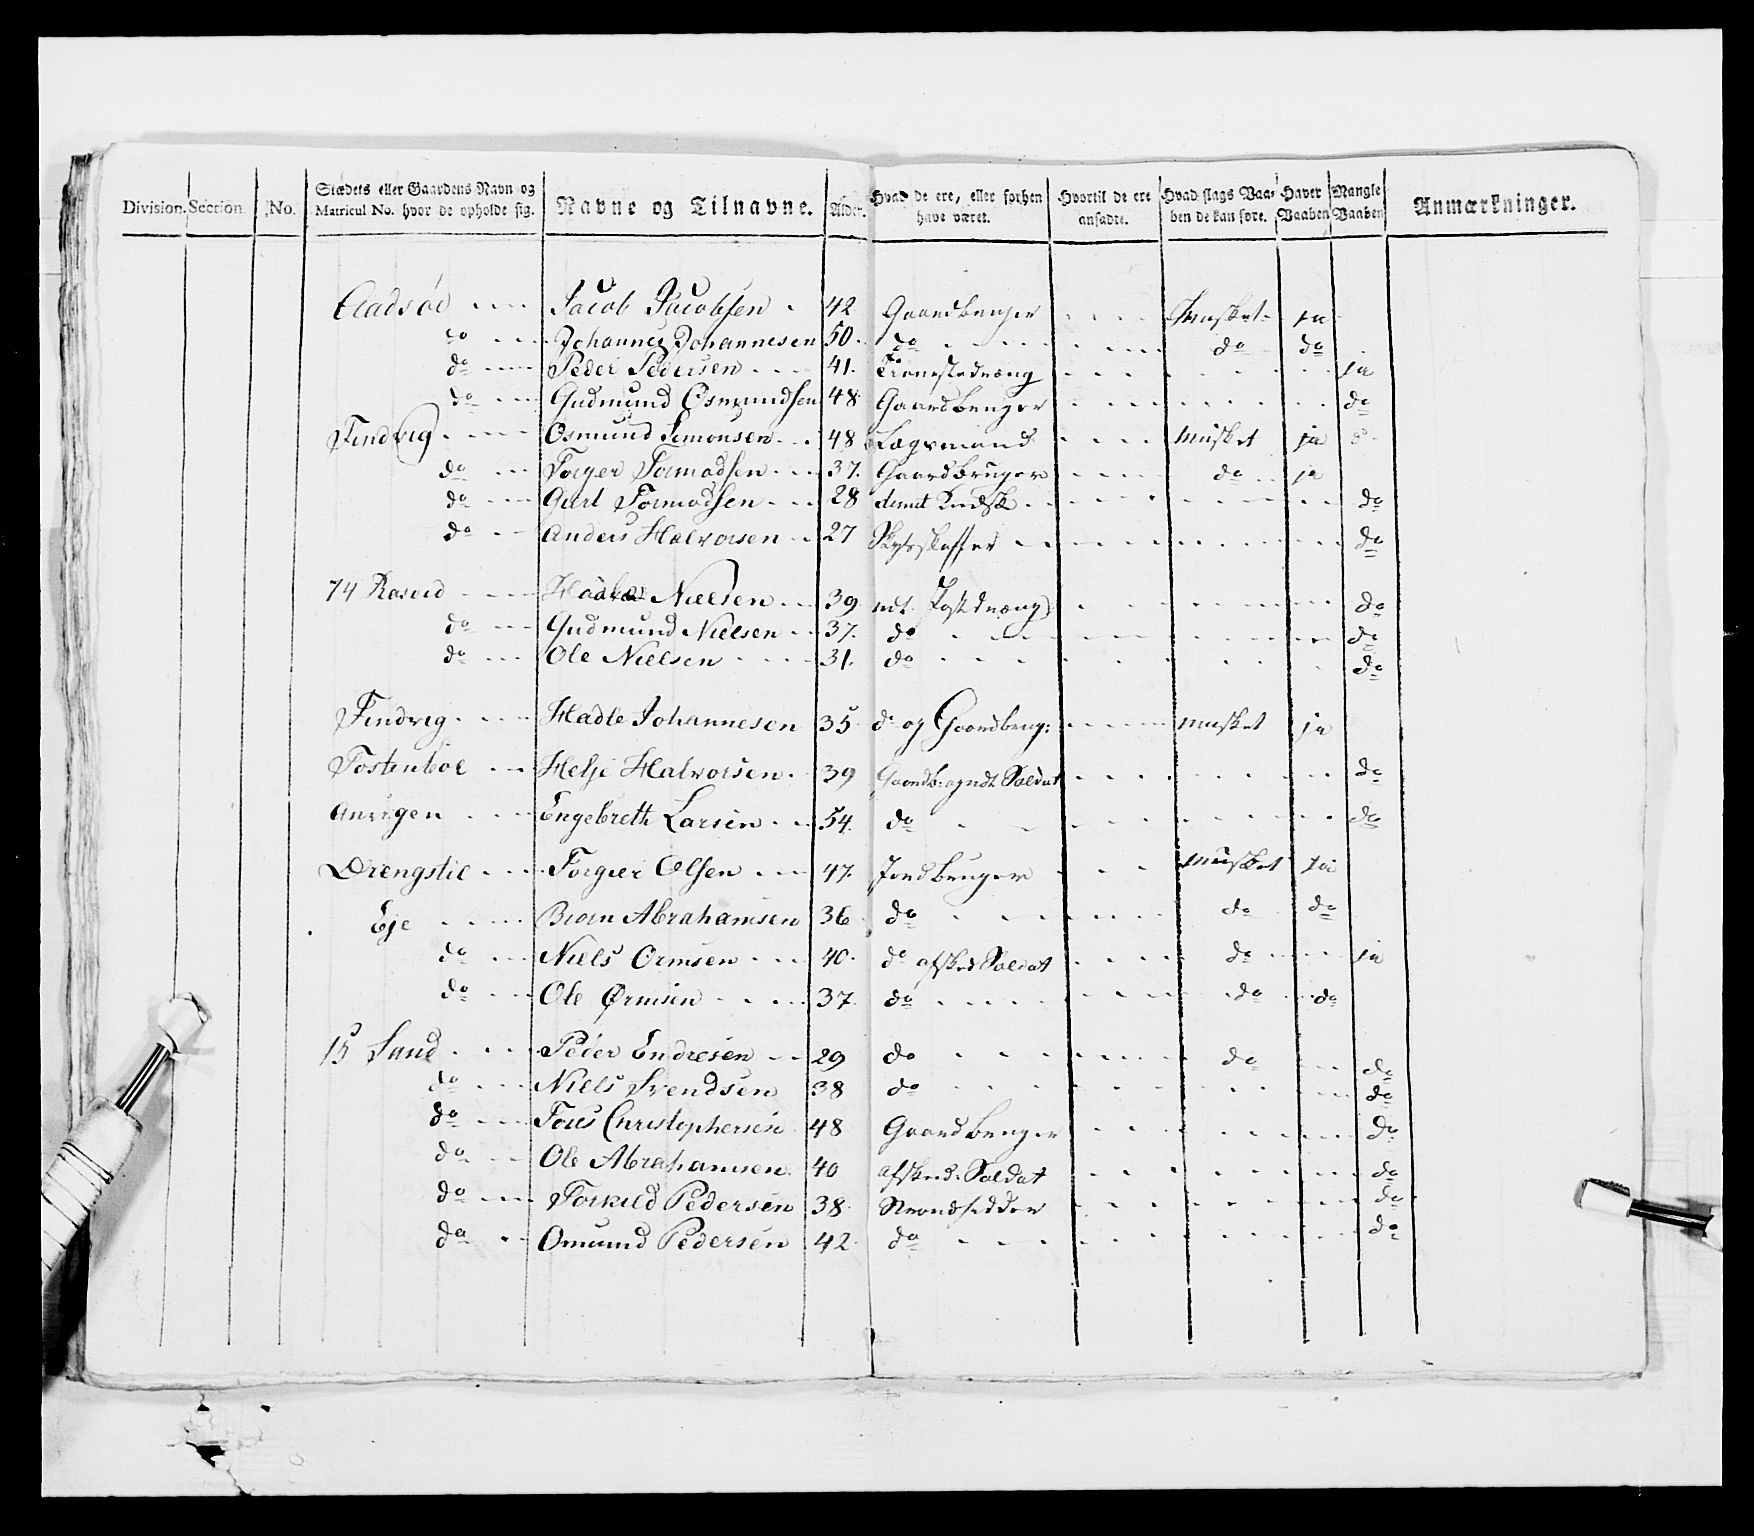 Division. Section. No. Stædets eller Gaardens Navn og Matricul No. hvor de opholde sig. Navne og Tilnavne. Alder. Hvad de ere, eller forhen have været. Hvortil de ere ansadte. Hvad slags Vaaben de kan føre. Haver Vaaben Mangle Vaaben Anmærkninger.
Jacob Jacobsen 42 Gaardbruger Musket ja
do Johannes Johannesen 50 do do do
do Peder Pedersen 41. ja
do Gudmund Osmundsen 48 Gaardbruger do
Findvig Osmund Simonsen 48 Lægsmand Musket ja
do Torger Tormodsen 37. Gaardbruger do ja
do Tormodsen 28 do
do Anders Halvorsen 27 Skydsskaffer do
74 Nielsen 39 do
do Gudmund Nielsen 37. do do
do Ole Nielsen 31. do do
Findvig Hadle Johannesen 35 do og Gaardbrug: Musket ja
Tostenbøe Helje Halvorsen 39 Soldat do
Engebreth Larsen 54. do do
Drengstie Torger Olsen 47. Jordbruger Musket ja
Eje Biorn Abrahamsen 36 do do do
do Niels Ormsen 40. do afsked Soldat do ja
do Ole Ormsen 37. do do do
15 Sand Peder Endresen 29 do do do
do Niels Svendsen 38 do do
do Christophersen 48 Gaardbruger do
do Ole Abrahamsen 40 afsked: Soldat do
do Torkild Pedersen 38 Strandsidder do
do Omund Pedersen 42 do do